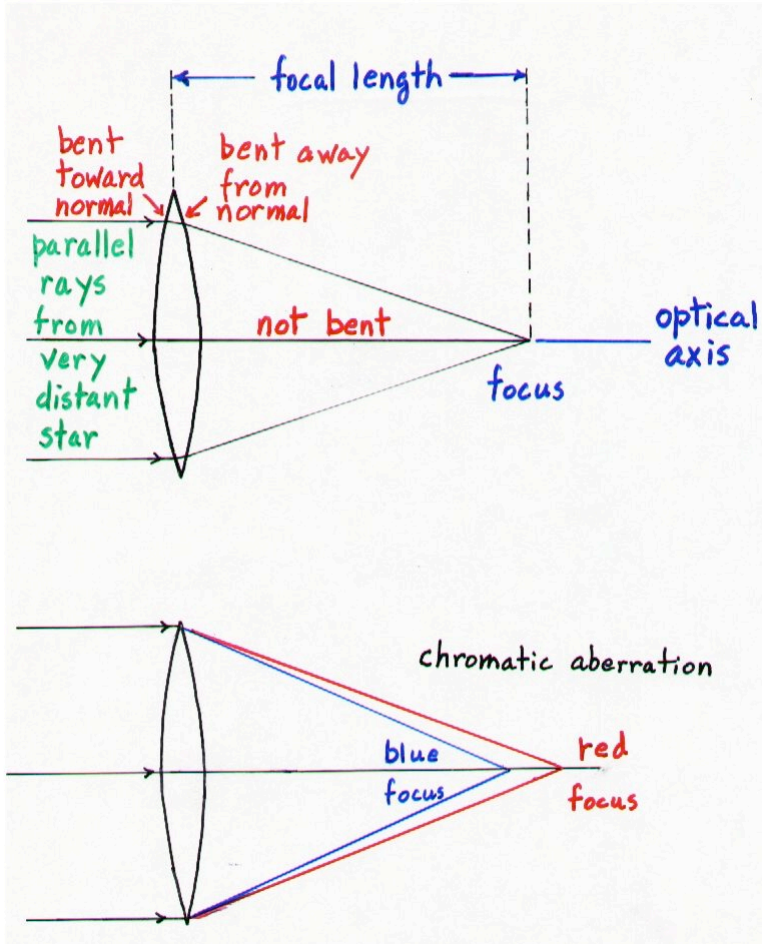 focal length
bent
toward
normal
bent away
from
normal
parallel
rays
from
very
distant
star
not bent
focus
optical
axis
chromatic aberration
blue
focus
red
focus